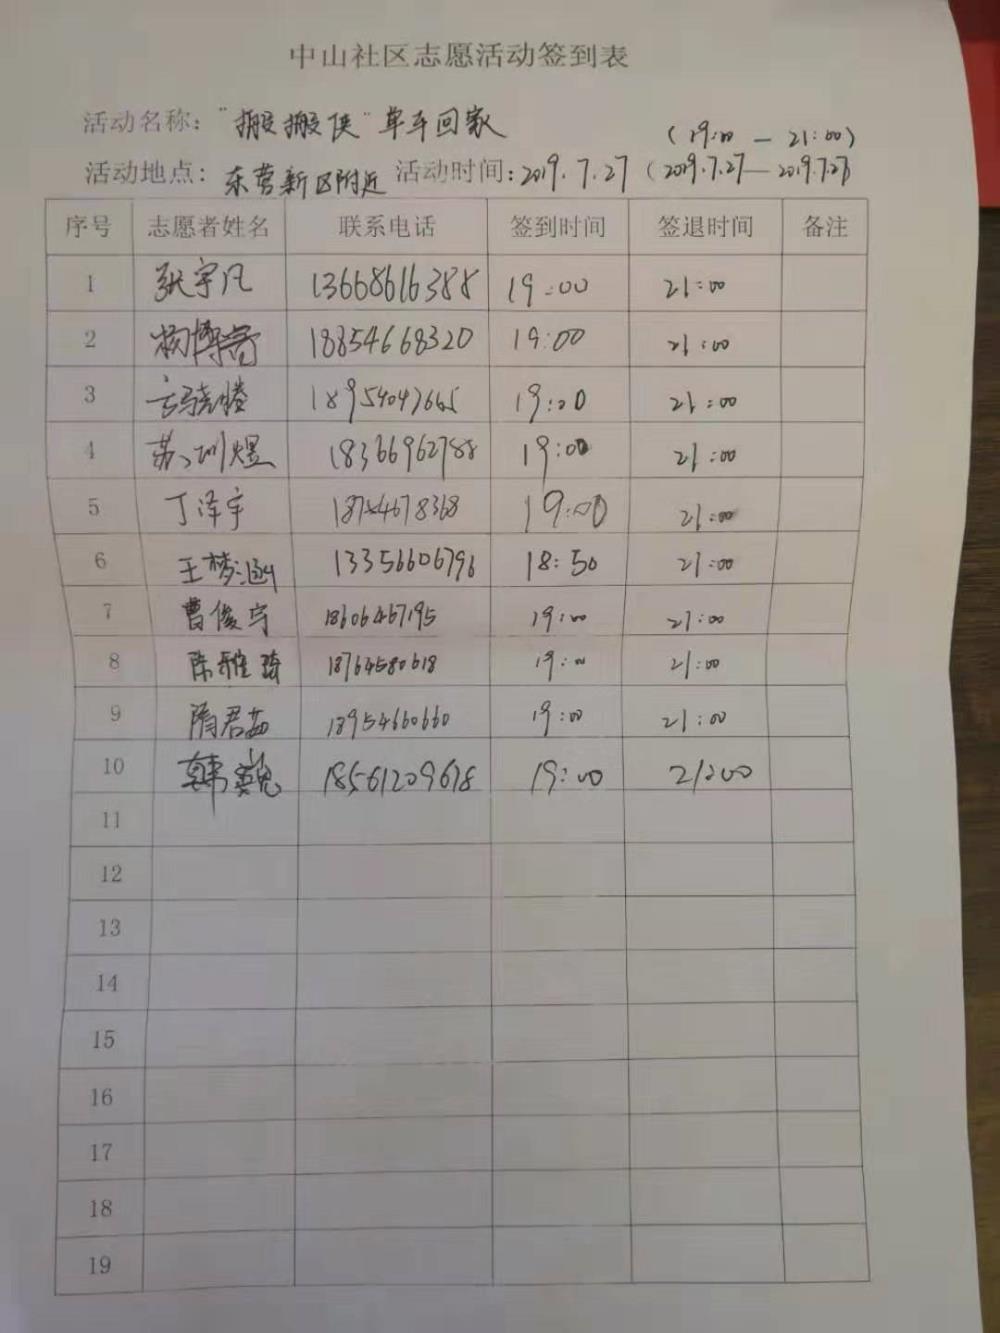 中山社区志愿活动签到表
活动名称："搬搬侠"单车回家
(19:00 — 21:00)
活动地点：东营新区附近 活动时间：2019.7.27 (2019.7.27—2019.7.27)
序号 志愿者姓名 联系电话 签到时间 签退时间 备注
1 张宇凡 13668616388 19:00 21:00
2 杨博 18854668320 19:00 21:00
3 18954047665 19:00 21:00
4 苏圳煜 18366962788 19:00 21:00
5 丁泽宇 18754678368 19:00 21:00
6 王梦涵 13356606796 18:50 21:00
7 曹俊宁 18606467195 19:00 21:00
8 陈雅琦 18764580618 19:00 21:00
9 隋君茹 18954660660 19:00 21:00
10 韩 18561209618 19:00 21:00
11
12
13
14
15
16
17
18
19